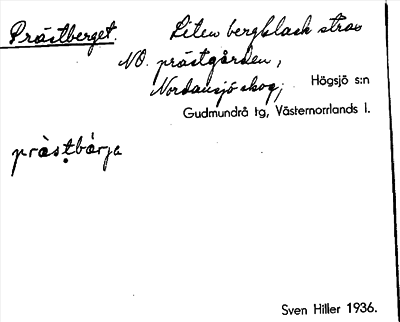 Prästberget. Liten bergklack strax
NO. prästgården,
Nordansjö skog; Högsjö s:n
Gudmundrå tg, Västernorrlands l.
pràs̩tbárja
Sven Hiller 1936.